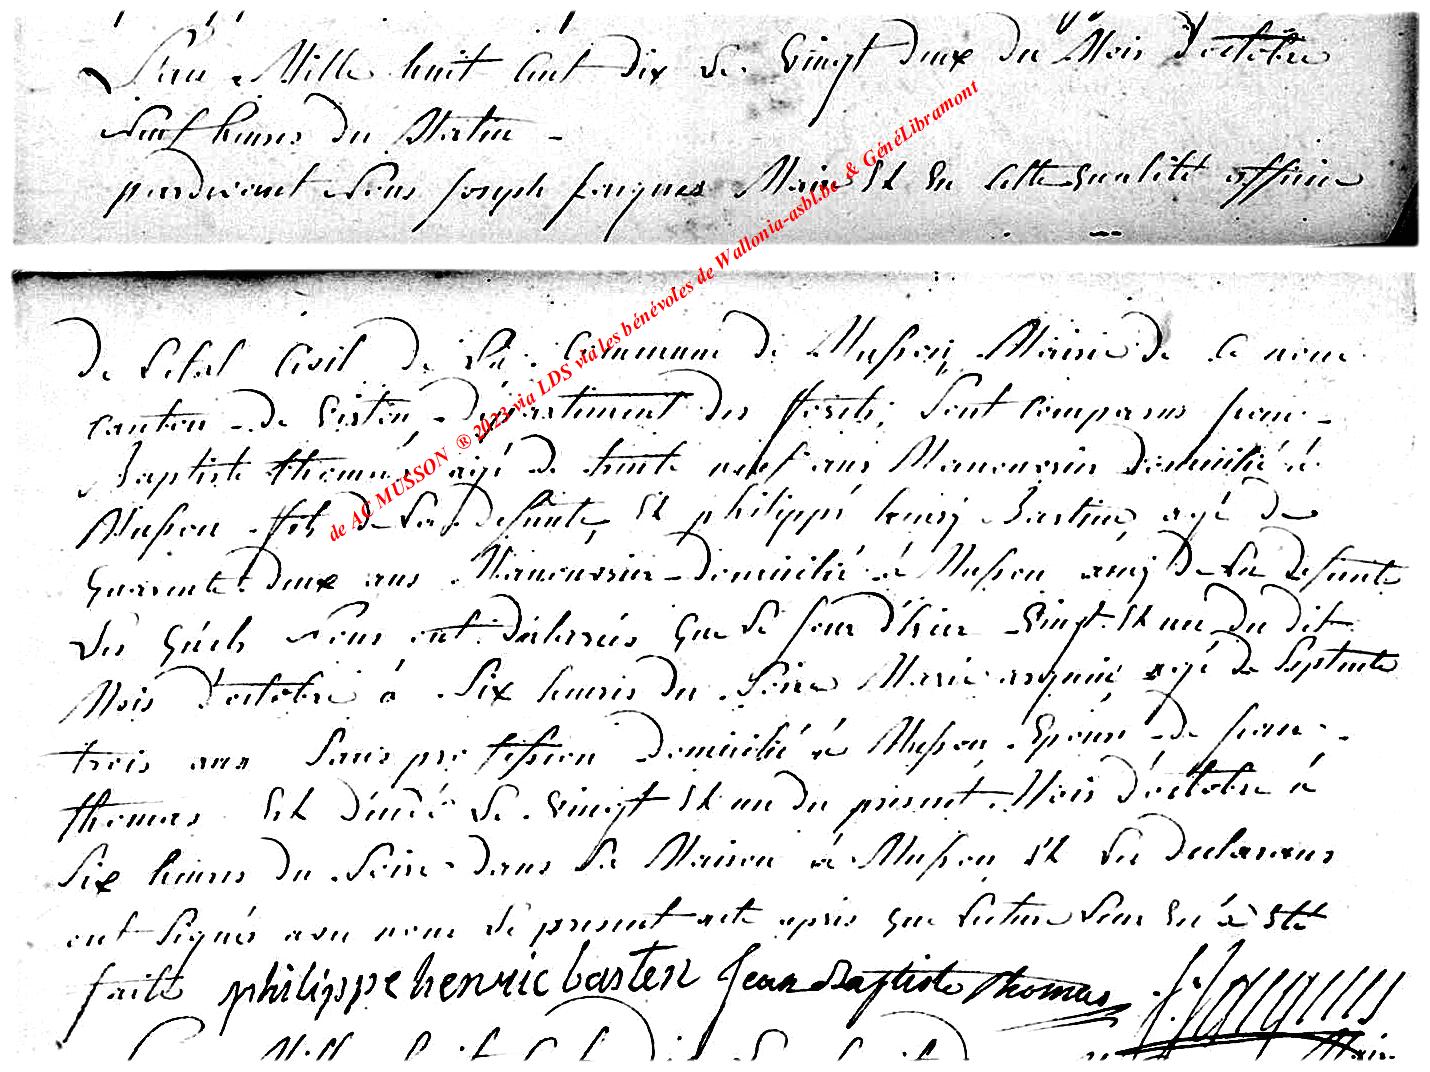 L'an Mille huit Cent dix Le Vingt deux du Mois d'octobre
Neuf heures du Matin -
pardevant Nous Joseph Jacques Maire Et En Cette qualité officier
de AC MUSSON ® 2023 via LDS via les bénévoles de Wallonia-asbl.be & GénéLibramont
de Letat Civil de La Commune de Musson, Mairie de Ce nom
canton de Virton, département des forêts, Sont Comparus Jean-
Baptiste thomas, agé de trente neuf ans Manouvrier domicilié à
Musson fils de La defunte, Et philippe henrÿ Bastin, agé de
quarante deux ans Manouvrier domicilié à Musson amÿ de La defunte
Les quels Nous ont déclarés que Le Jour d'hier Vingt Et un du dit
Mois d'octobre à Six heures du Soire Marie agé de Septente
trois ans Sans profession domicilié à Musson Epouse de Jean-
thomas Est décédé Le Vingt Et un du présent Mois d'octobre à
Six heures du Soire dans Sa Maison à Musson, Et Les declarans
ont Signés avec nous Le present acte apris que Lecture Leur En à Etté
faite philippe henric basten Jean Baptiste thomas J. Jacques
Maire